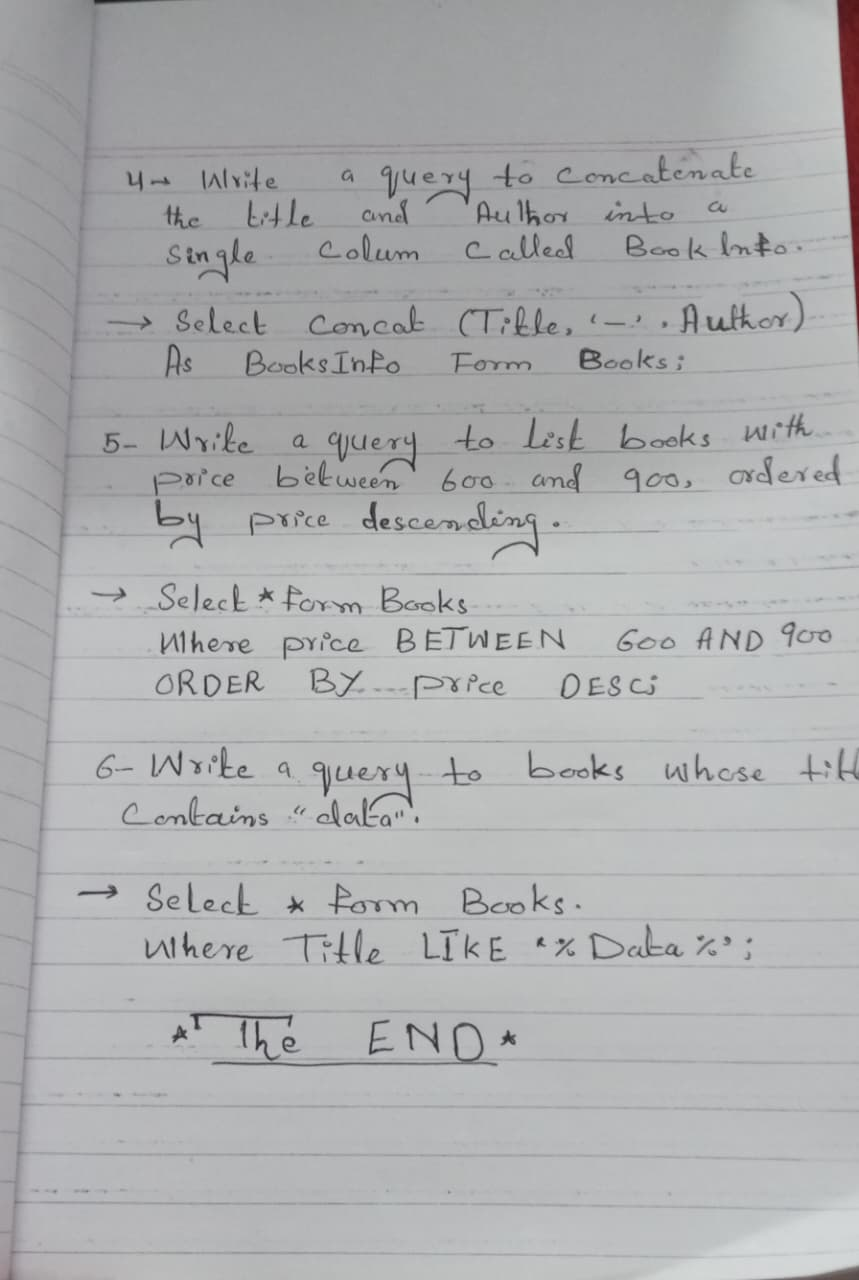 4→ Write a query to Concatenate
the title and Author into a
Single Colum Called Book Info.
→ Select Concat (Title, '-', Author)
As BooksInfo Form Books;
5- Write a query to list books with
price between 600 and 900, ordered
by price descending.
→ Select * form Books
Where price BETWEEN 600 AND 900
ORDER BY price DESC;
6- Write a query to books whose titl
Contains "data".
→ Select * form Books.
Where Title LIKE '%Data%';
* The END *